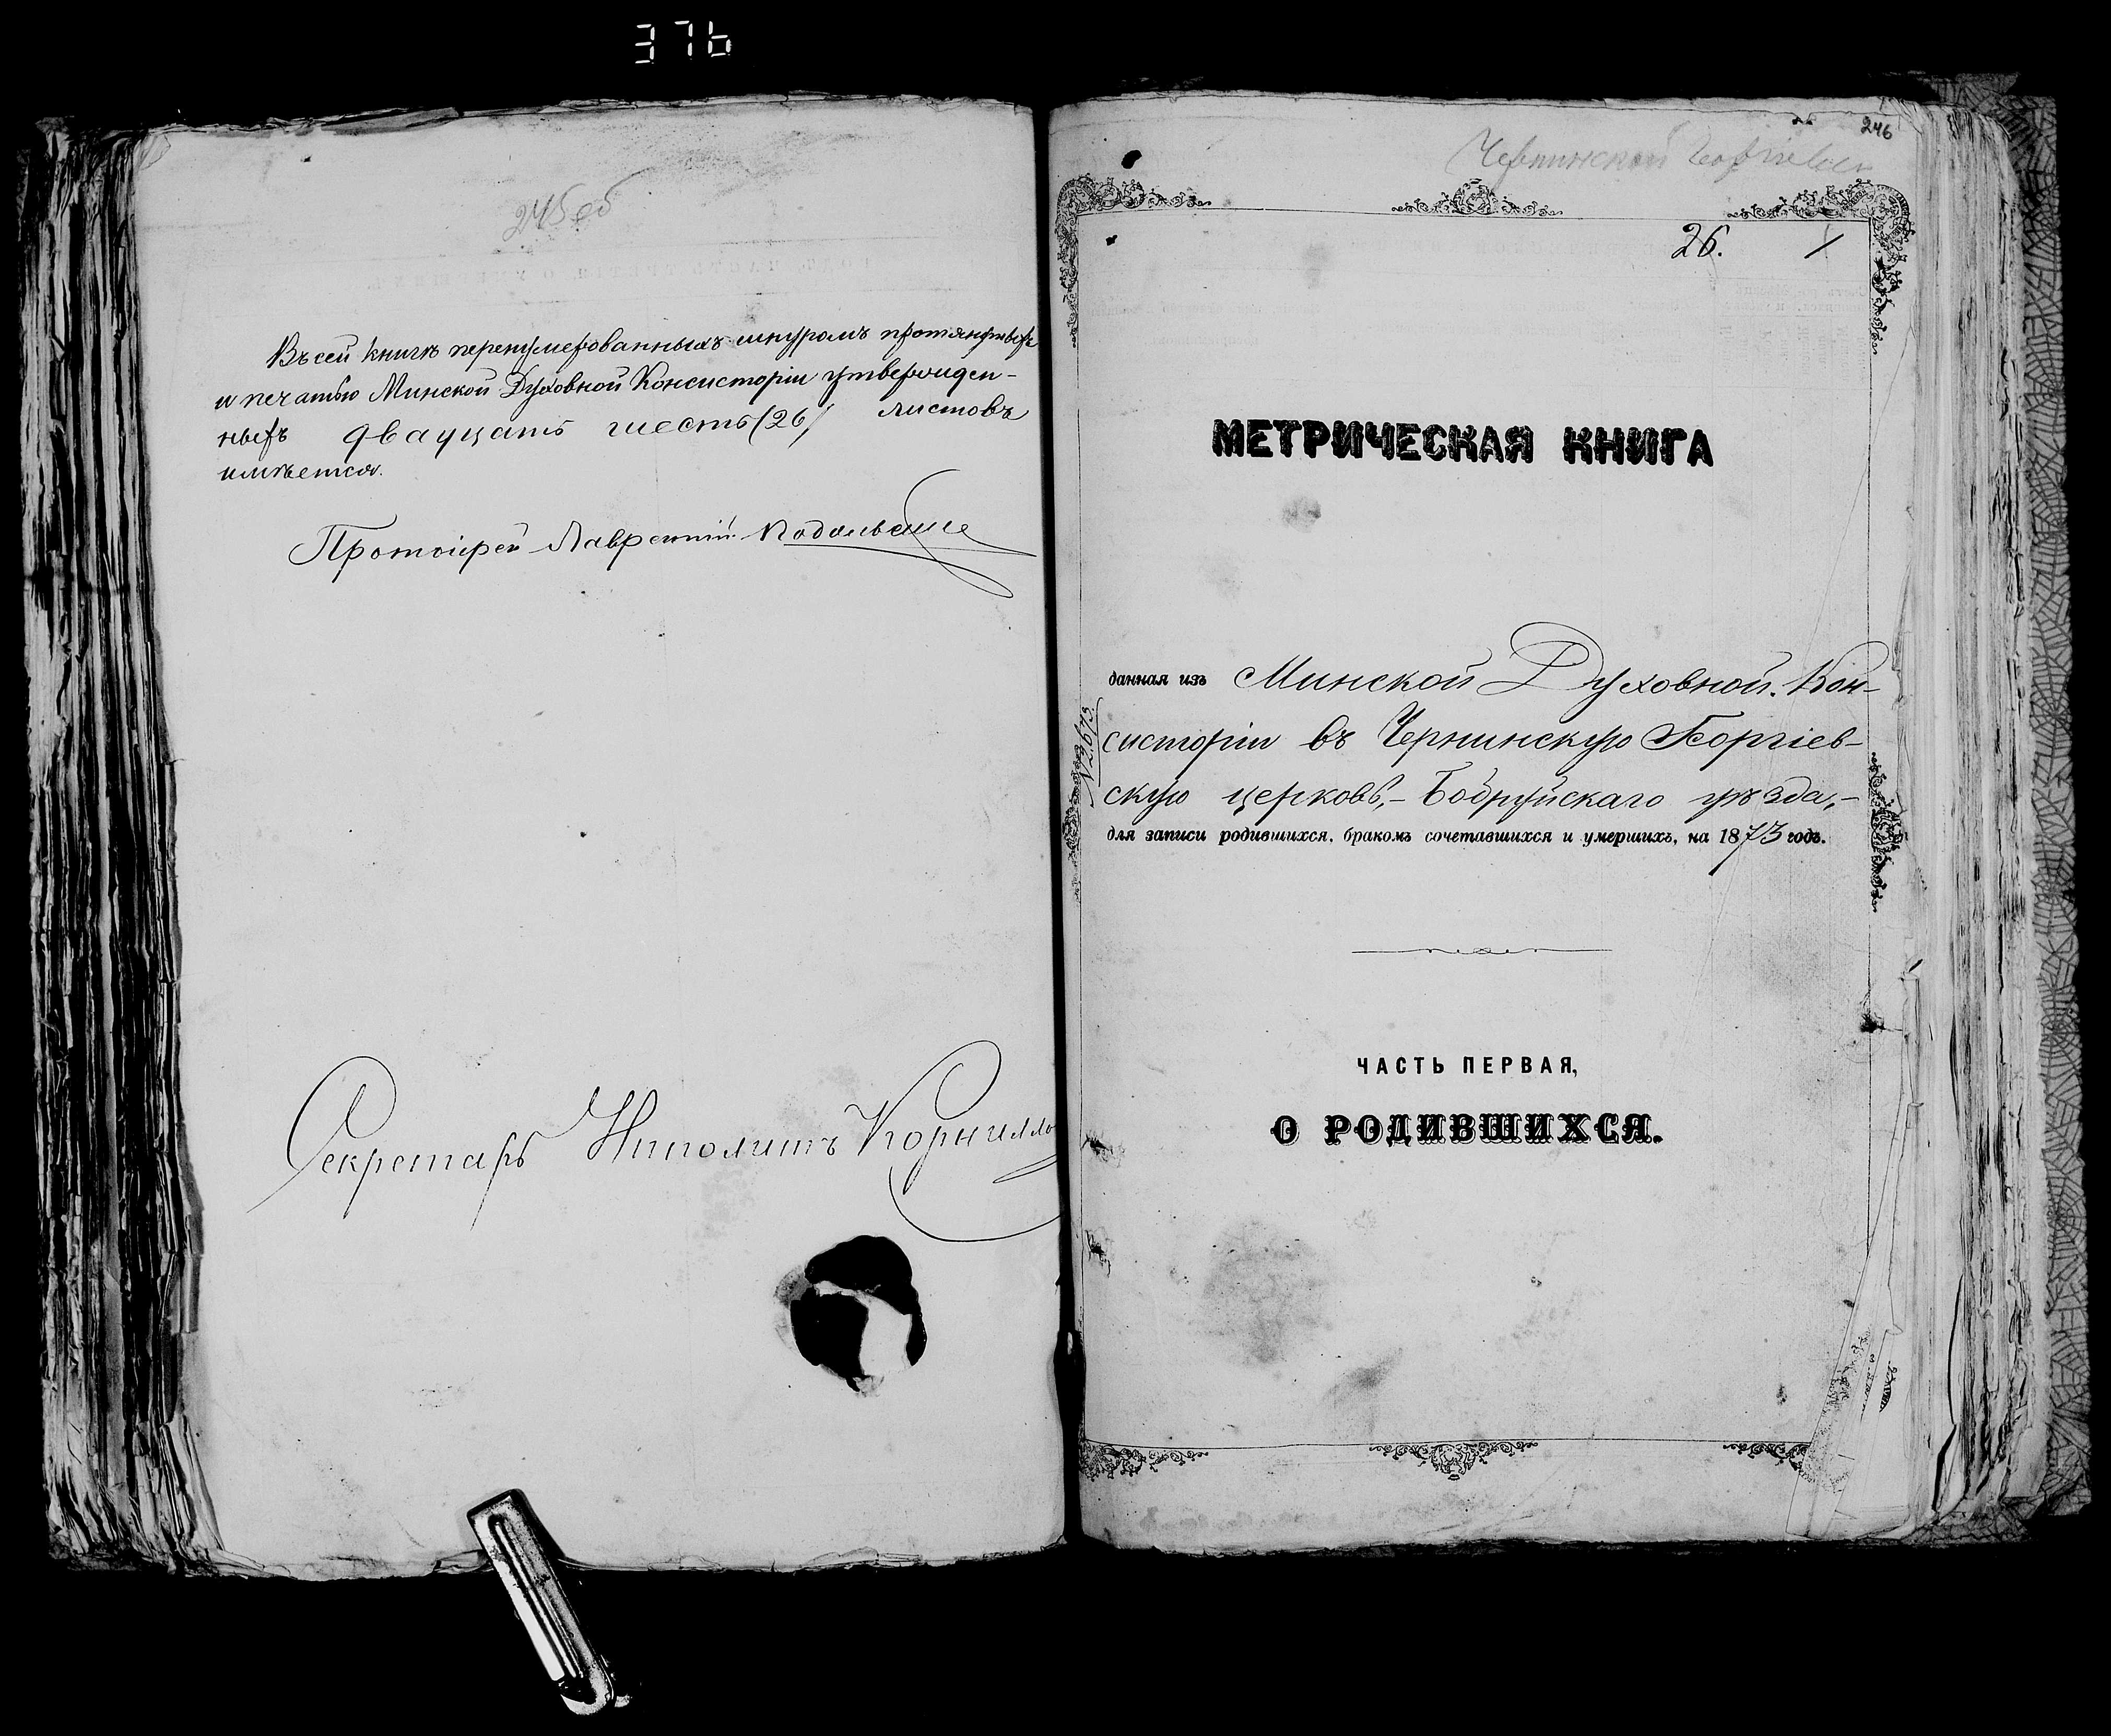 376
245 об
Въ сей книгѣ перенумерованныхъ шнуромъ протянутыхъ
и печатью Минской Духовной Консисторіи утвержден-
ныхъ двадцать шесть (26) листовъ
имѣется.
Протоіерей Лаврентій Подольскій
Секретарь Ипполитъ Корнилло
246
Чернинской Георгіевск
26. 1
МЕТРИЧЕСКАЯ КНИГА
данная изъ Минской Духовной Кон-
систоріи въ Чернинскую Георгіев-
скую церковь, Бобруйскаго уѣзда,
для записи родившихся, бракомъ сочетавшихся и умершихъ, на 1873 годъ.
ЧАСТЬ ПЕРВАЯ,
О РОДИВШИХСЯ.